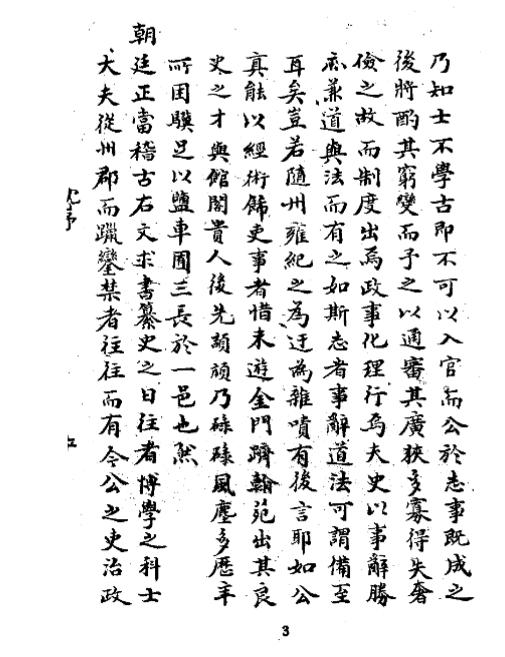 乃知士不學古即不可以入官而公於志事既成之
後將酌其窮變而予之以通審其廣狹多寡得失奢
儉之故而制度出焉政事化理行焉夫史以事辭勝
亦兼道與法而有之如斯志者事辭道法可謂備至
耳矣豈若隨州雍紀之為迂為雜嘖有後言耶如公
真能以經術飾吏事者惜未遊金門躋翰苑出其良
史之才與館閣貴人後先頡頏乃碌碌風塵多歷年
所困驥足以鹽車囿三長於一邑也然
朝
廷正當稽古右文求書纂史之日往者博學之科士
大夫從州郡而躐鑾禁者往往而有今公之吏治政
沈序
3